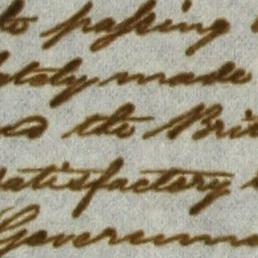 to passing
made
the Brit
satisfactory
Governme